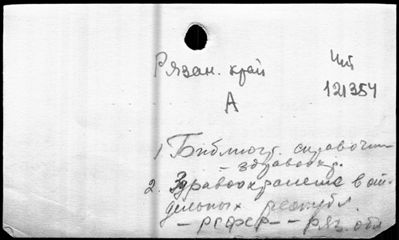 Рязан. край
Чт
121354
А
1 Библиогр. справочн
- здравоохр.
2. Здравоохранение в от
дельных республ.
- РСФСР - - ряз. обл